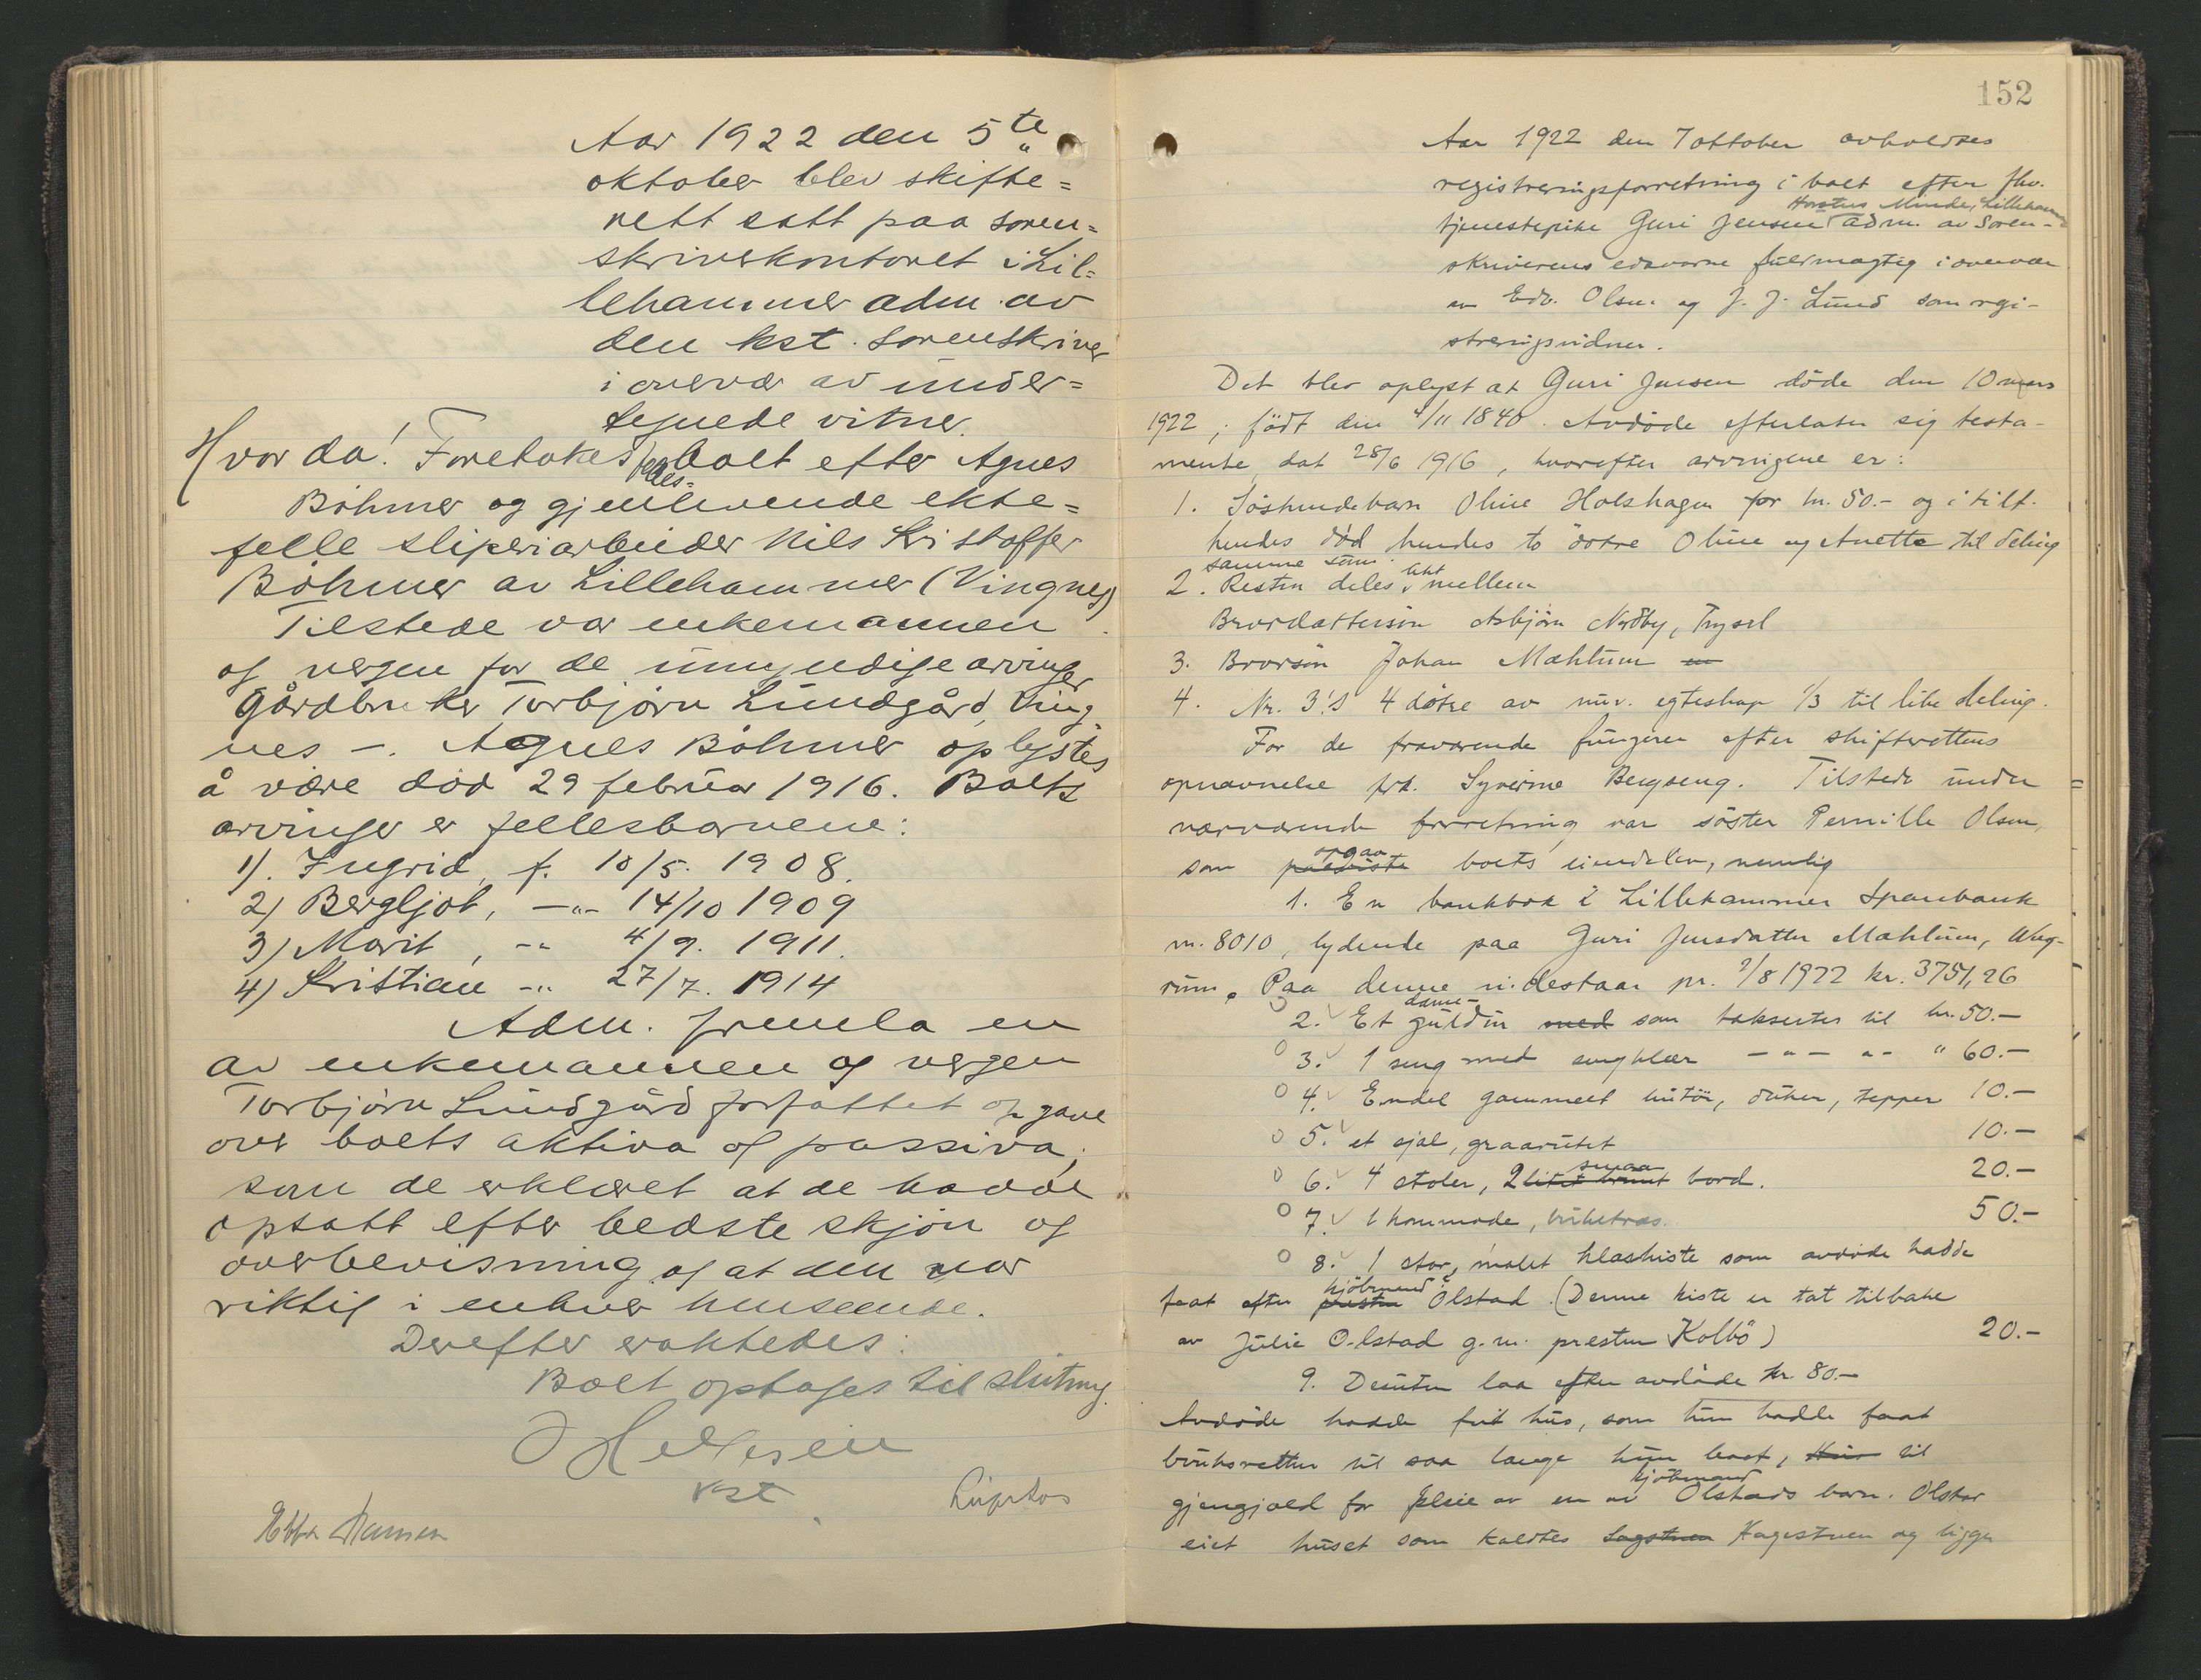 Aar 1922 den 5te
oktober blev skifte=
rett satt paa soren=
skriverkontoret i Lil=
lehammer adm. av
den kst. sorenskriver
i overvær av under=
tegnede vitner.
Hvorda! Foretokes felles= boet efter Agnes
Böhmer og gjenlevende ekte=
felle sliperiarbeider Nils Kristoffer
Böhmer av Lillehammer (Vingnes)
Tilstede var enkemannen
og vergen for de umyndige arvinger
gårdbruker Torbjörn Lundgård, Ving
nes –. Agnes Böhmer oplystes
å være död 29 februar 1916. Boets
arvinger er fellesbarnene:
1). Ingrid, f. 10/5. 1908.
2) Bergljot, –"– 14/10 1909
3) Marit, –" 4/9. 1911.
4) Kristian –" 27/7. 1914
Adm. fremla en
av enkemannen og vergen
Torbjörn Lundgård forfattet opgave
over boets aktiva og passiva,
som de erklæret at de hadde
opsatt efter bedste skjön og
overbevisning og at den var
riktig i enhver henseende.
Derefter
Boet optages til slutning.
kst.
Ebba Hansen
152
Aar 1922 den 7 oktober avholdtes
registreringsforretning i boet efter fhv.
tjenestepike Guri Jensen Minde, Lillehammer adm. av Soren-
skriverens edsvorne fuldmægtig i overvær
av Edv. Olsen og J. J. Lund som regi-
streringsvidner.
Det blev oplyst at Guri Jensen döde den 10 mars
1922, födt den 4/11 1840. Avdöde efterlater sig testa-
mente, dat 28/6 1916, hvorefter arvingene er:
1. Söskendebarn Oline Holshagen for kr. 50.- og i tilf.
hendes död hendes to dötre Oline og Anette til deling
samme sum.
2. Resten deles likt mellem
Brordattersön Asbjörn Nordby, Trysil
3. Brorsön Johan Mæhlum en
4. Nr. 3's 4 dötre av nuv. egteskap 1/3 til like deling.
For de fraværende fungerer efter skifterettens
opnævnelse frk. Syverine Bergseng. Tilstede under
nærværende forretning var söster Pernille Olsen,
som paaviste opgav boets eiendeler, nemlig
1. En bankbok i Lillehammer Sparebank
nr. 8010, lydende paa Guri Jensdatter Mæhlum, Ving-
rum. Paa denne indestaar pr. 9/8 1922 kr. 3751,26
2. Et dame- guldur med som takseres til kr. 50.–
3. 1 seng med sengklær –"– "– " 60.–
4. Endel gammelt töi, duker, tepper 10.–
5. et sjal, graarutet 10.–
6. 4 stoler, 2 litet smaa bord. 20.–
7. 1 kommode, birketræs 50.–
8. 1 stor, malet klæskiste som avdöde hadde
faat efter kjöbmand Olstad. (Denne kiste er tat tilbake
av Julie Olstad g.m. presten Kolbö) 20.–
9. Desuten laa efter avdöde kr. 80.–
Avdöde hadde frit hus, som hun hadde faat
bruksretten til saa længe hun levet, til
gjengjæld for pleie av en av kjöbmand Olstads barn. Olstad
eiet huset som kaldtes Hagestuen og ligger